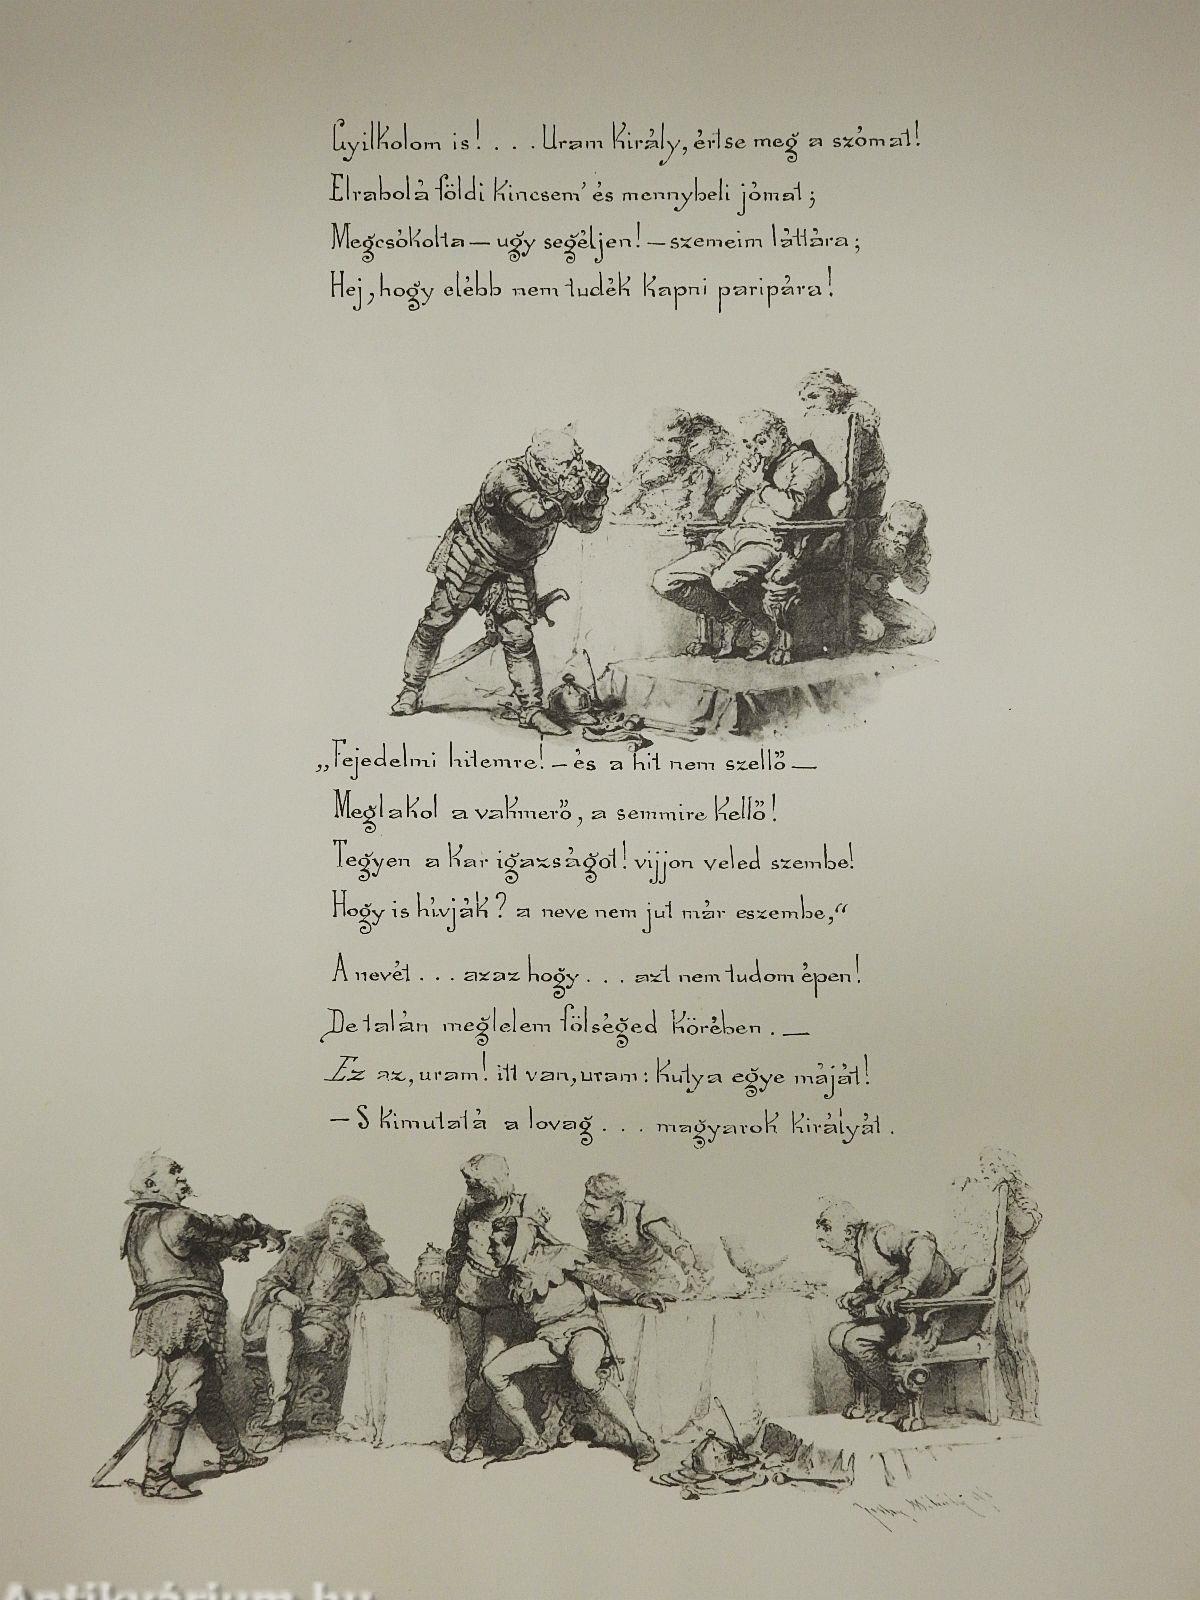 Gyilkolom is! . . . Uram Király, értse meg a szómat!
Elrabolá földi kincsem' és mennybeli jómat;
Megcsókolta — ugy segéljen! — szemeim láttára;
Hej, hogy elébb nem tudék kapni paripára!
„Fejedelmi hitemre! — és a hit nem szellő —
Meglakol a vakmerő, a semmire kellő!
Tegyen a kar igazságot! vijjon veled szembe!
Hogy is hívják? a neve nem jut már eszembe,“
A nevét . . . azaz hogy . . . azt nem tudom épen!
De talán meglelem fölséged körében. —
Ez az, uram! itt van, uram: kutya egye máját!
— S kimutatá a lovag . . . magyarok királyát.
Zichy Mihály
Antikvárium.hu